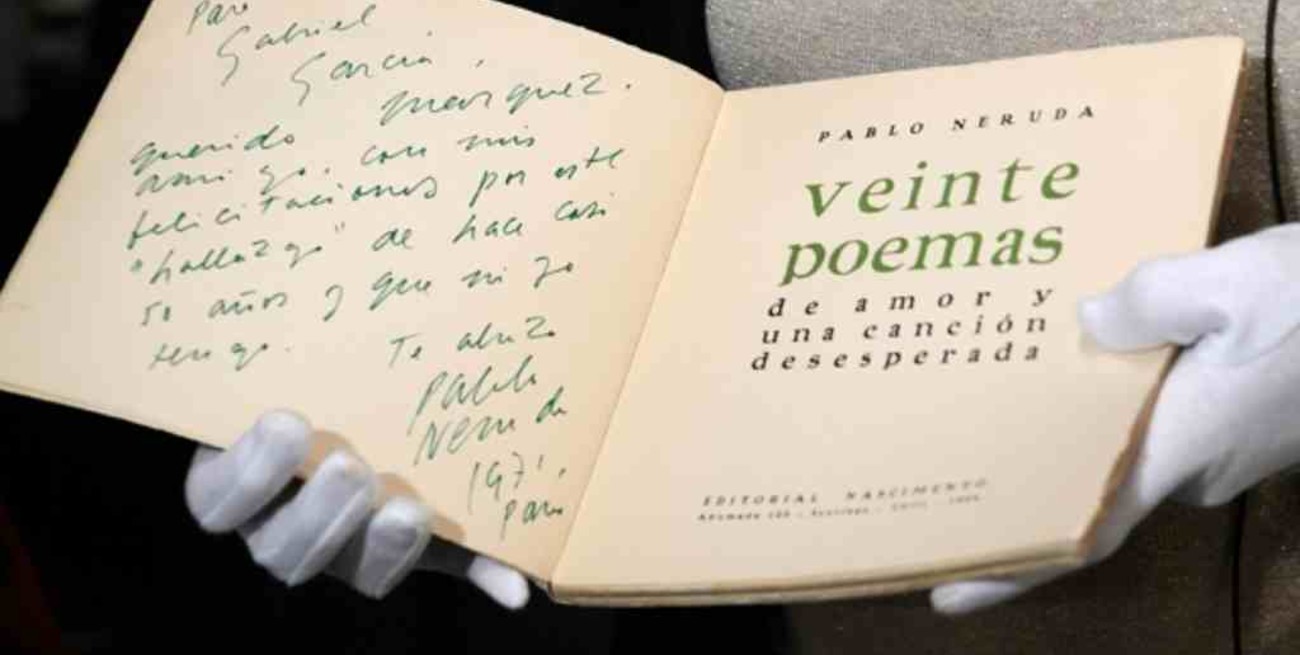 Para
Gabriel
García
Márquez.
querido
amigo, con mis
felicitaciones por este
"hallazgo" de hace casi
50 años y que ni yo
tengo.
Te abraza
Pablo
Neruda
1971,
Paris
PABLO NERUDA
veinte
poemas
de amor y
una canción
desesperada
EDITORIAL NASCIMENTO